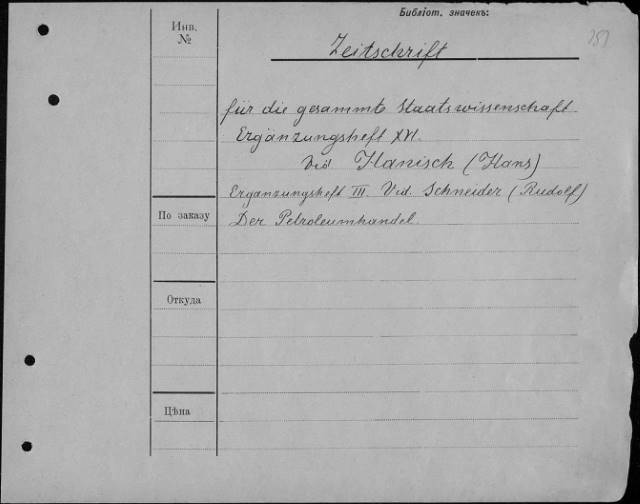 Библіот. значекъ:
Инв.
№
Zeitschrift
für die gesammte Staatswissenschaft
Ergänzungsheft XVI.
Vid Hanisch (Hans)
Ergänzungsheft III. Vid. Schneider (Rudolf)
По заказу
Der Petroleumhandel.
Откуда
Цѣна